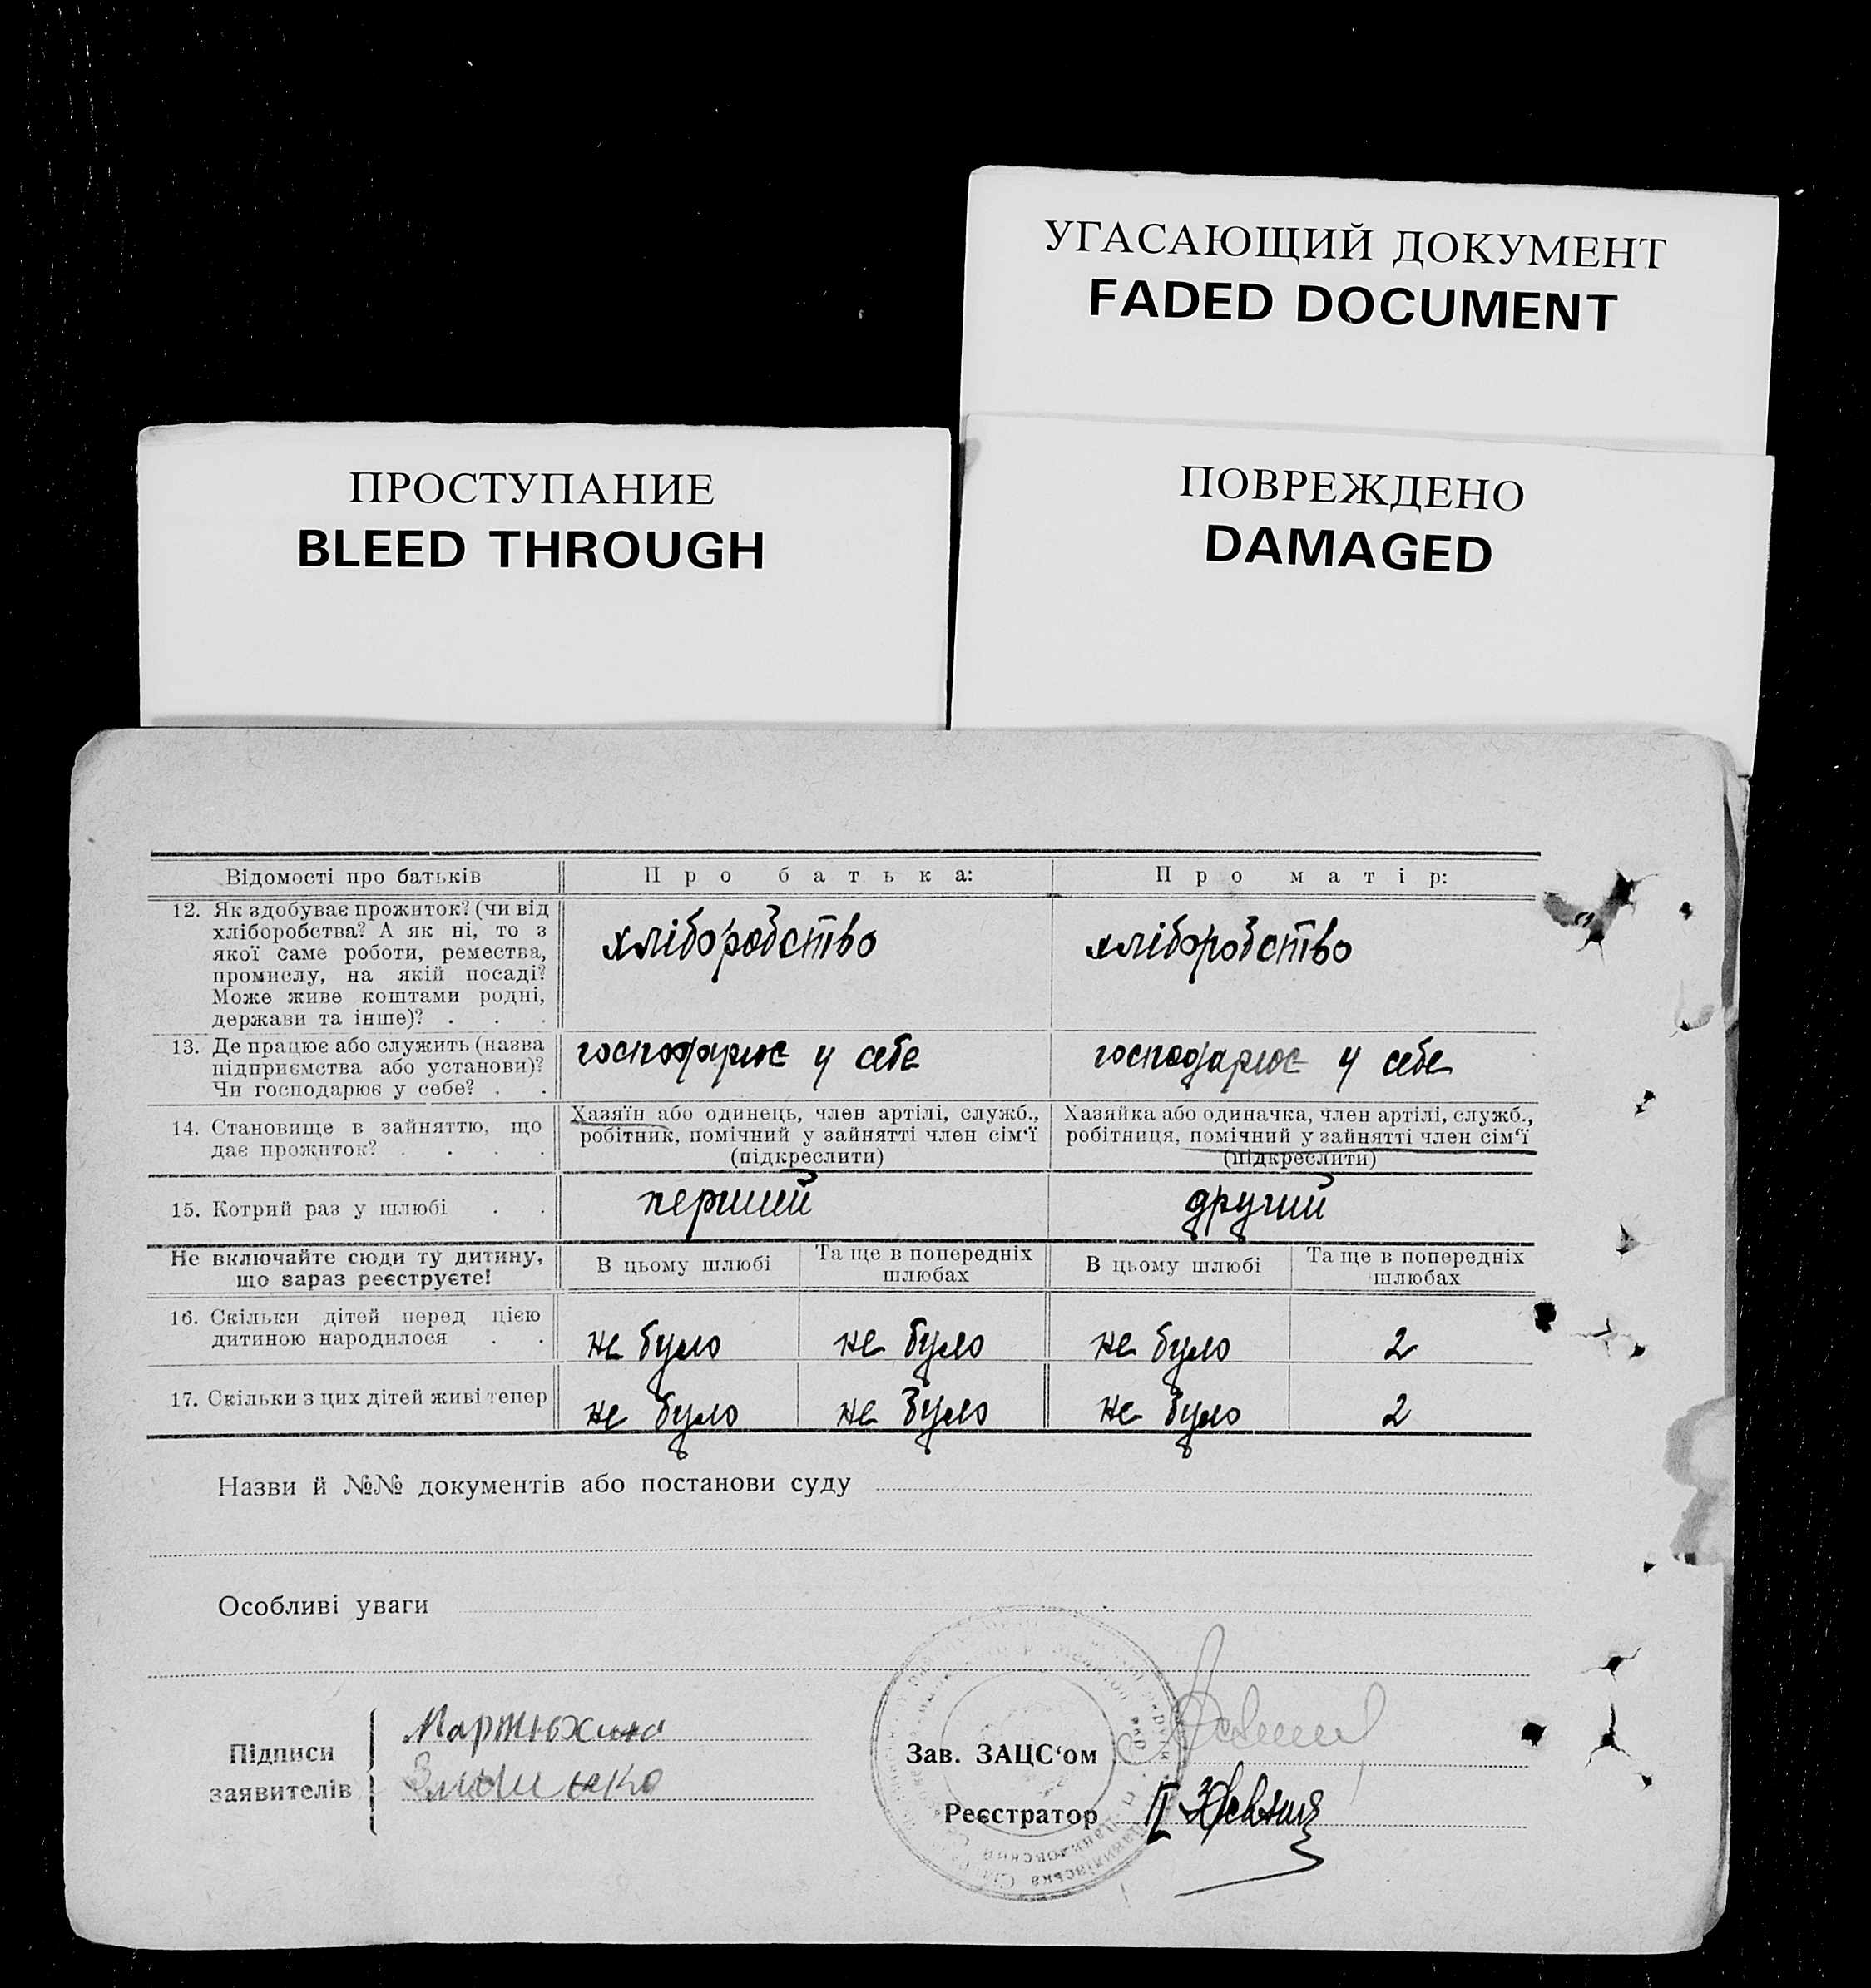 УГАСАЮЩИЙ ДОКУМЕНТ
FADED DOCUMENT
ПРОСТУПАНИЕ
BLEED THROUGH
ПОВРЕЖДЕНО
DAMAGED
Відомості про батьків
Про батька:
Про матір:
12. Як здобуває прожиток? (чи від
хліборобства? А як ні, то з
якої саме роботи, ремества,
промислу, на якій посаді?
Може живе коштами родні,
держави та інше)? . . .
хліборобство
хліборобство
13. Де працює або служить (назва
підприємства або установи)?
Чи господарює у себе? . .
господарює у себе
господарює у себе
14. Становище в зайняттю, що
дає прожиток? . . . .
Хазяїн або одинець, член артілі, служб.,
робітник, помічний у зайнятті член сім‘ї
(підкреслити)
Хазяйка або одиначка, член артілі, служб.,
робітниця, помічний у зайнятті член сім‘ї
(підкреслити)
15. Котрий раз у шлюбі . .
перший
другий
Не включайте сюди ту дитину,
що зараз реєструєте!
В цьому шлюбі
Та ще в попередніх
шлюбах
В цьому шлюбі
Та ще в попередніх
шлюбах
16. Скільки дітей перед цією
дитиною народилося . .
не було
не було
не було
2
17. Скільки з цих дітей живі тепер
не було
не було
не було
2
Назви й №№ документів або постанови суду
Особливі уваги
Підписи
заявителів
Мартюхина
Зав. ЗАЦС‘ом
Реєстратор